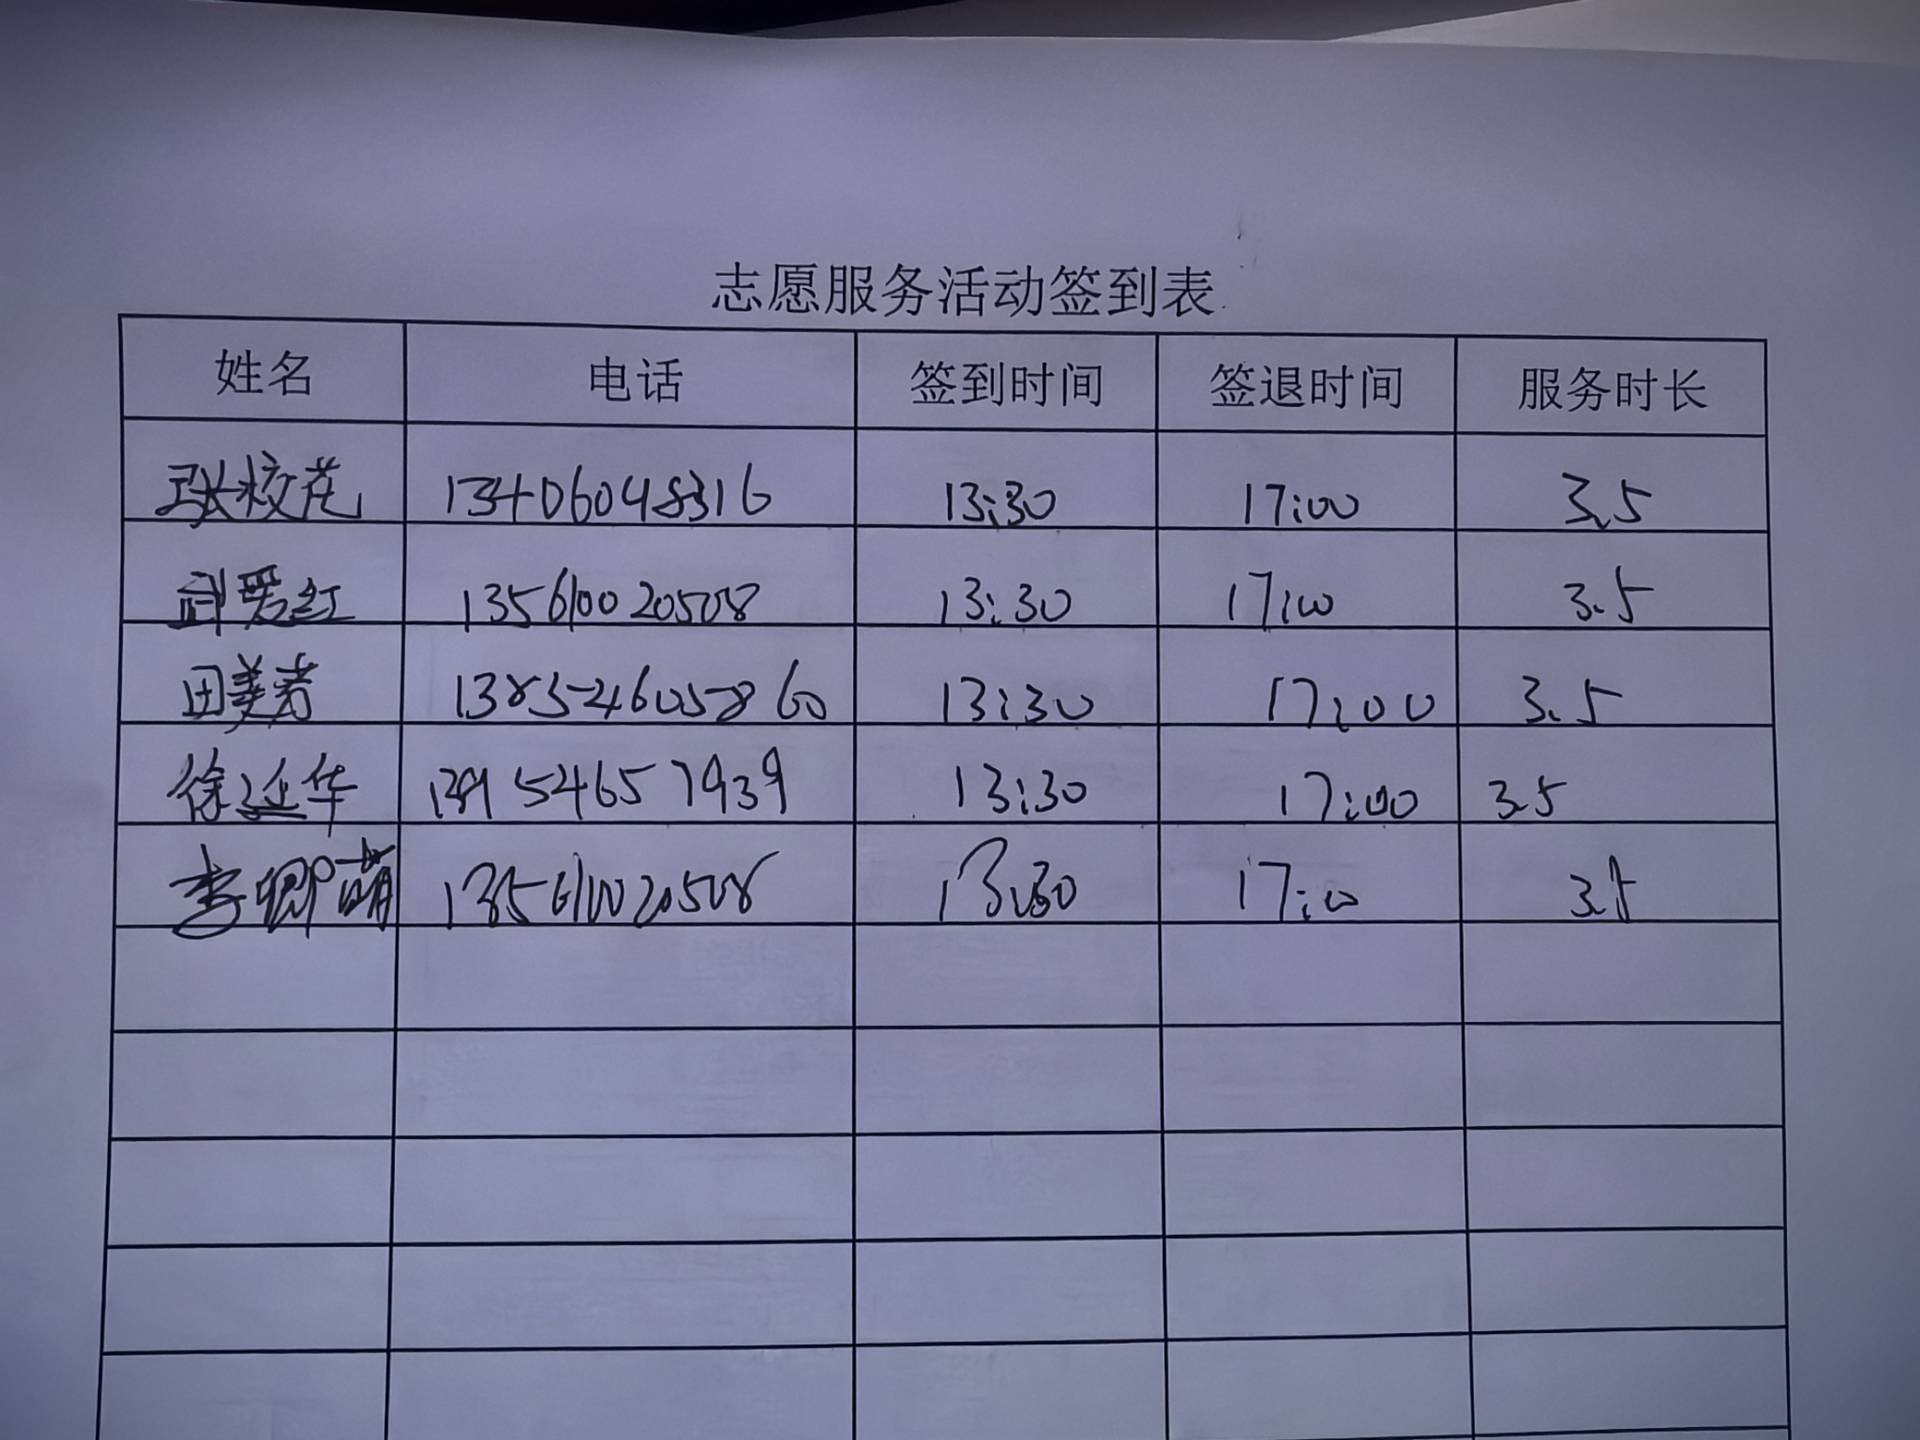 志愿服务活动签到表
姓名 电话 签到时间 签退时间 服务时长
张校花 13406048316 13:30 17:00 3.5
武 红 135610020508 13:30 17:00 3.5
田美 13854605860 13:30 17:00 3.5
徐延华 13954657939 13:30 17:00 3.5
李卿萌 135610020508 13:30 17:00 3.5